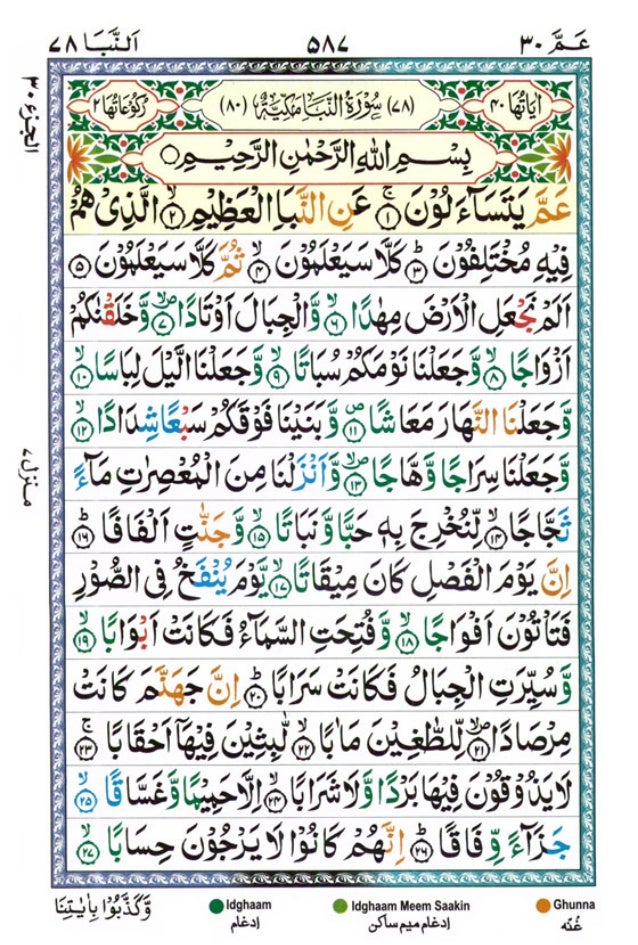 عَمَّ ٣٠ ٥٨٧ اَلنَّبَا ٧٨
الجزء ٣٠
اٰيَاتُهَا ٤٠ (٧٨) سُوْرَةُ النَّبَاِ مَكِّيَّةٌ (٨٠) رُكُوْعَاتُهَا ٢
بِسْمِ اللهِ الرَّحْمٰنِ الرَّحِيْمِ
عَمَّ يَتَسَآءَلُوْنَ ۚ﴿١﴾ عَنِ النَّبَاِ الْعَظِيْمِ ۙ﴿٢﴾ الَّذِىْ هُمْ
فِيْهِ مُخْتَلِفُوْنَ ؕ﴿٣﴾ كَلَّا سَيَعْلَمُوْنَ ۙ﴿٤﴾ ثُمَّ كَلَّا سَيَعْلَمُوْنَ ﴿٥﴾
اَلَمْ نَجْعَلِ الْاَرْضَ مِهٰدًا ۙ﴿٦﴾ وَّالْجِبَالَ اَوْتَادًا ۪ۙ﴿٧﴾ وَّخَلَقْنٰكُمْ
اَزْوَاجًا ۙ﴿٨﴾ وَّجَعَلْنَا نَوْمَكُمْ سُبَاتًا ۙ﴿٩﴾ وَّجَعَلْنَا الَّيْلَ لِبَاسًا ۙ﴿١٠﴾
وَّجَعَلْنَا النَّهَارَ مَعَاشًا ۪﴿١١﴾ وَّبَنَيْنَا فَوْقَكُمْ سَبْعًا شِدَادًا ۙ﴿١٢﴾
وَّجَعَلْنَا سِرَاجًا وَّهَّاجًا ۪ۙ﴿١٣﴾ وَّاَنْزَلْنَا مِنَ الْمُعْصِرٰتِ مَآءً
ثَجَّاجًا ۙ﴿١٤﴾ لِّنُخْرِجَ بِهٖ حَبًّا وَّنَبَاتًا ۙ﴿١٥﴾ وَّجَنّٰتٍ اَلْفَافًا ؕ﴿١٦﴾
اِنَّ يَوْمَ الْفَصْلِ كَانَ مِيْقَاتًا ۙ﴿١٧﴾ يَّوْمَ يُنْفَخُ فِى الصُّوْرِ
فَتَاْتُوْنَ اَفْوَاجًا ۙ﴿١٨﴾ وَّفُتِحَتِ السَّمَآءُ فَكَانَتْ اَبْوَابًا ۙ﴿١٩﴾
وَّسُيِّرَتِ الْجِبَالُ فَكَانَتْ سَرَابًا ؕ﴿٢٠﴾ اِنَّ جَهَنَّمَ كَانَتْ
مِرْصَادًا ۪ۙ﴿٢١﴾ لِّلطّٰغِيْنَ مَاٰبًا ۙ﴿٢٢﴾ لّٰبِثِيْنَ فِيْهَاۤ اَحْقَابًا ۚ﴿٢٣﴾
لَا يَذُوْقُوْنَ فِيْهَا بَرْدًا وَّلَا شَرَابًا ۙ﴿٢٤﴾ اِلَّا حَمِيْمًا وَّغَسَّاقًا ۙ﴿٢٥﴾
جَزَآءً وِّفَاقًا ؕ﴿٢٦﴾ اِنَّهُمْ كَانُوْا لَا يَرْجُوْنَ حِسَابًا ۙ﴿٢٧﴾
منزل ٧
وَّكَذَّبُوْا بِاٰيٰتِنَا
Idghaam
ادغام
Idghaam Meem Saakin
ادغام میم ساکن
Ghunna
غُنّه